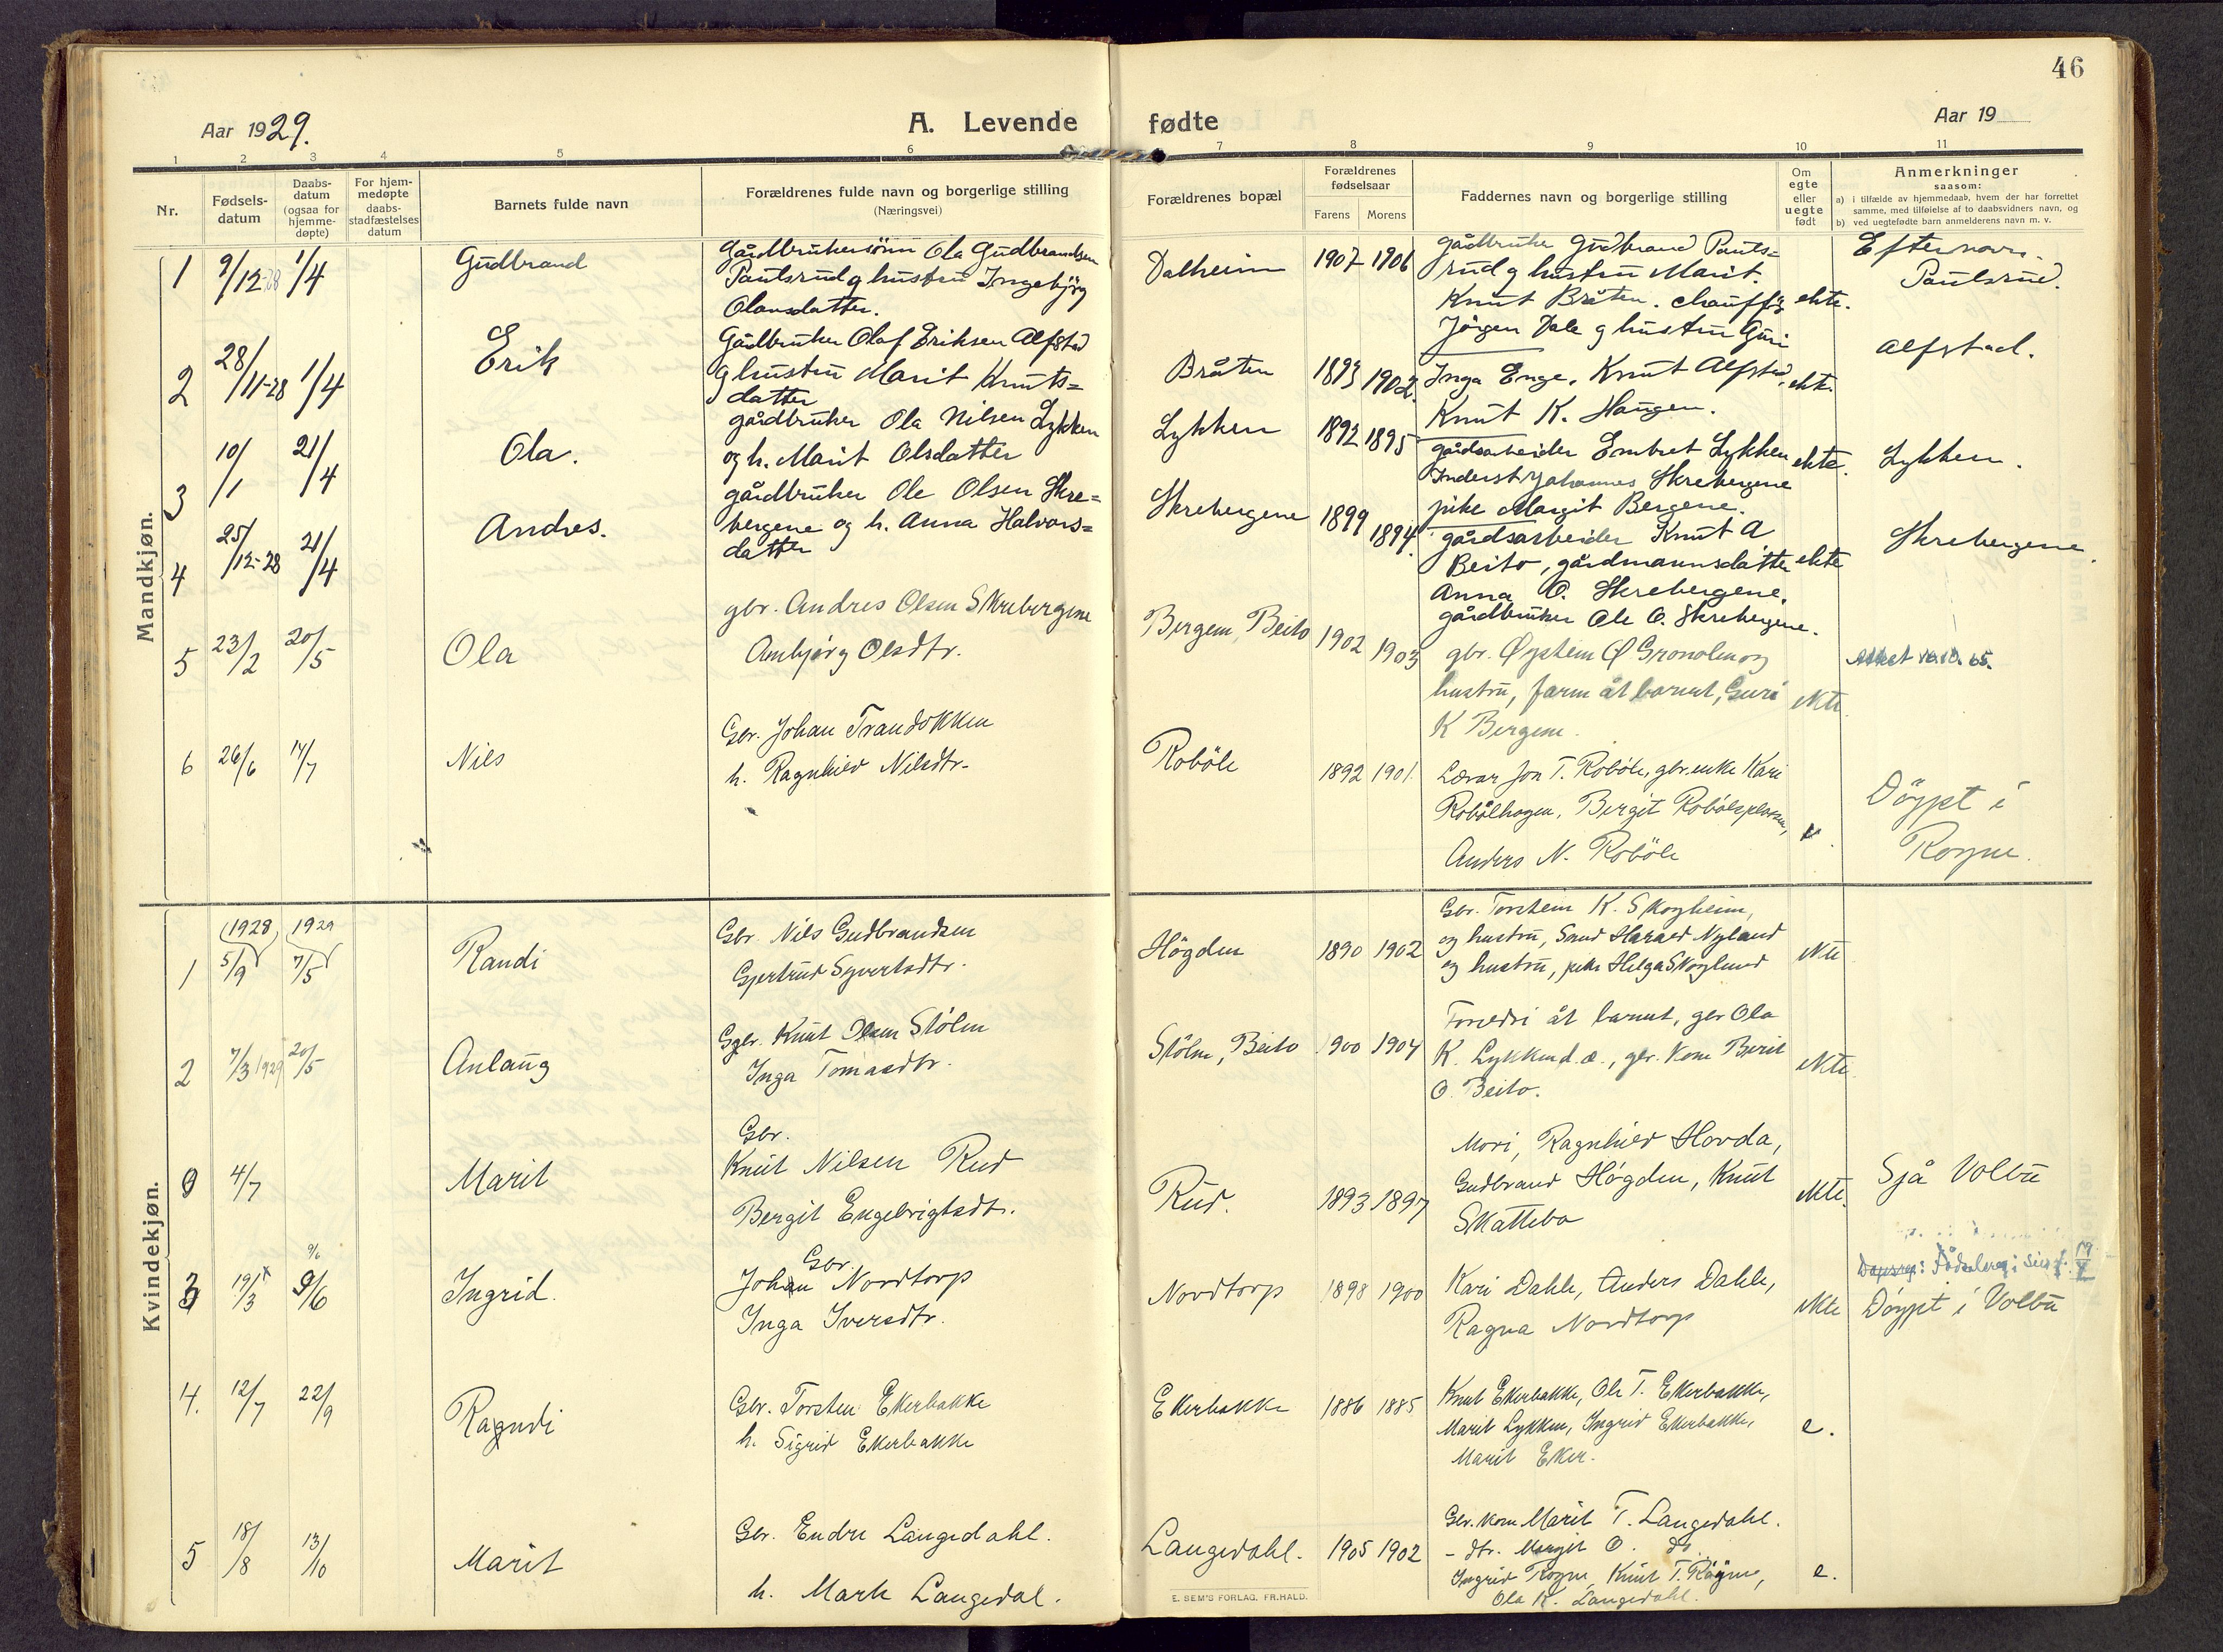 46
Aar 1929.
A. Levende fødte
Aar 19
1 2 3 4 5 6 7 8 9 10 11
Nr.
Fødsels-
datum
Daabs-
datum
(ogsaa for
hjemme-
døpte)
For hjem-
medøpte
daabs-
stadfæstelses
datum
Barnets fulde navn
Forældrenes fulde navn og borgerlige stilling
(Næringsvei)
Forældrenes bopæl
Forældrenes
fødselsaar
Farens Morens
Faddernes navn og borgerlige stilling
Om
egte
eller
uegte
født
Anmerkninger
saasom:
a) i tilfælde av hjemmedaab, hvem der har forrettet
samme, med tilføielse af to daabsvidners navn, og
b) ved uegtefødte barn anmelderens navn m. v.
Mandkjøn.
1 9/12-28 1/4 Gudbrand
Gårdbrukersönn Ola Gudbrandsen
Paulsrud og hustru Ingebjörg
Olausdatter.
Dalheim 1907 1906
Gårdbruker Gudbrand Pauls=
rud og hustru Marit.
Knut Bråten. chauffør
Jörgen Dale og hustru Guri
ekte.
Efternavn.
Paulsrud.
2 28/11-28 1/4 Erik
Gårdbruker Olaf Eriksen Alfstad
og hustru Marit Knuts=
datter
Bråten 1893 1902.
Inga Enge. Knut Alfstad,
Knut K. Haugen.
ekte.
Alfstad.
3 10/1 21/4 Ola.
gårdbruker Ola Nilsen Lykken
og h. Marit Olsdatter
Lykken 1892 1895
gårdsarbeider Embret Lykken
Inderst Johannes Skrebergene
pike Margit Bergene.
ekte.
Lykken.
4 25/12-28 21/4 Andres.
gårdbruker Ole Olsen Skre=
bergene og h. Anna Halvors=
datter
Skrebergene 1899 1894.
gårdsarbeider Knut A
Beito, gårdmannsdatter
Anna O. Skrebergene.
gårdbruker Ole O. Skrebergene.
ekte
Skrebergene.
5 23/2 20/5 Ola
gbr. Andres Olsen Skrebergene
Ambjørg Olsdtr.
Bergene, Beito 1902 1903
gbr. Øystein Ø Gronolen og
hustru, farm åt barnet, Guri
K Bergene.
ekte.
Attest 18.10.65.
6 26/6 14/7 Nils
Gbr. Johan Trandokken
h. Ragnhild Nilsdtr.
Roböle 1892 1901.
Lærar Jon T. Robøle, gbr.enke Kari
Robølhagen, Bergit Robølsplassen,
Anders N. Robøle
e.
Döypt i
Rogne.
Kvindekjøn.
1 (1928) 5/9 (1929) 7/5 Randi
Gbr. Nils Gudbrandsen
Gjertrud Syvertsdtr.
Högden 1890 1902
Gbr. Torstein K. Skogheim,
og hustru, Harald Nyland
og hustru, pike Helga Skoglund
ekte
2 7/3 1929 20/5 Anlaug
Gbr. Knut Olsen Stölen
Inga Tomasdtr.
Stölen, Beito 1900 1904
Foreldri åt barnet, gbr Ola
K. Lykken d. e., gbr. kone Berit
O. Beito.
ekte.
0 4/7 Marit
Gbr.
Knut Nilsen Rud
Bergit Engebrigtsdtr.
Rud. 1893 1897
Mori, Ragnhild Hovda,
Gudbrand Högden, Knut
Skattebo
ekte.
Sjå Volbu
3 19/3 x 9/6 9/6 Ingrid.
Gbr.
Johan Nordtorp
Inga Iversdtr.
Nordtorp 1898 1900
Kari Dahle, Anders Dahle,
Ragna Nordtorp
ekte
Döypt i Volbu
4. 12/7 22/9 Ragndi
Gbr. Torsten Ekerbakke
h. Sigrid Ekerbakke
Ekerbakke 1886 1885
Knut Ekerbakke, Ole T. Ekerbakke,
Marit Lykken, Ingrid Ekerbakke,
Marit Eker.
e.
5 18/8 13/10 Marit
Gbr. Endre Langedahl.
h. Marte Langedal.
Langedahl. 1905 1902
Gbr. kone Marit T. Langedahl.
- dtr. Margit O. do
Ingrid Rogne, Knut T. Rogne,
Ola K. Langedahl.
e.
E. SEM'S FORLAG, FR.HALD.